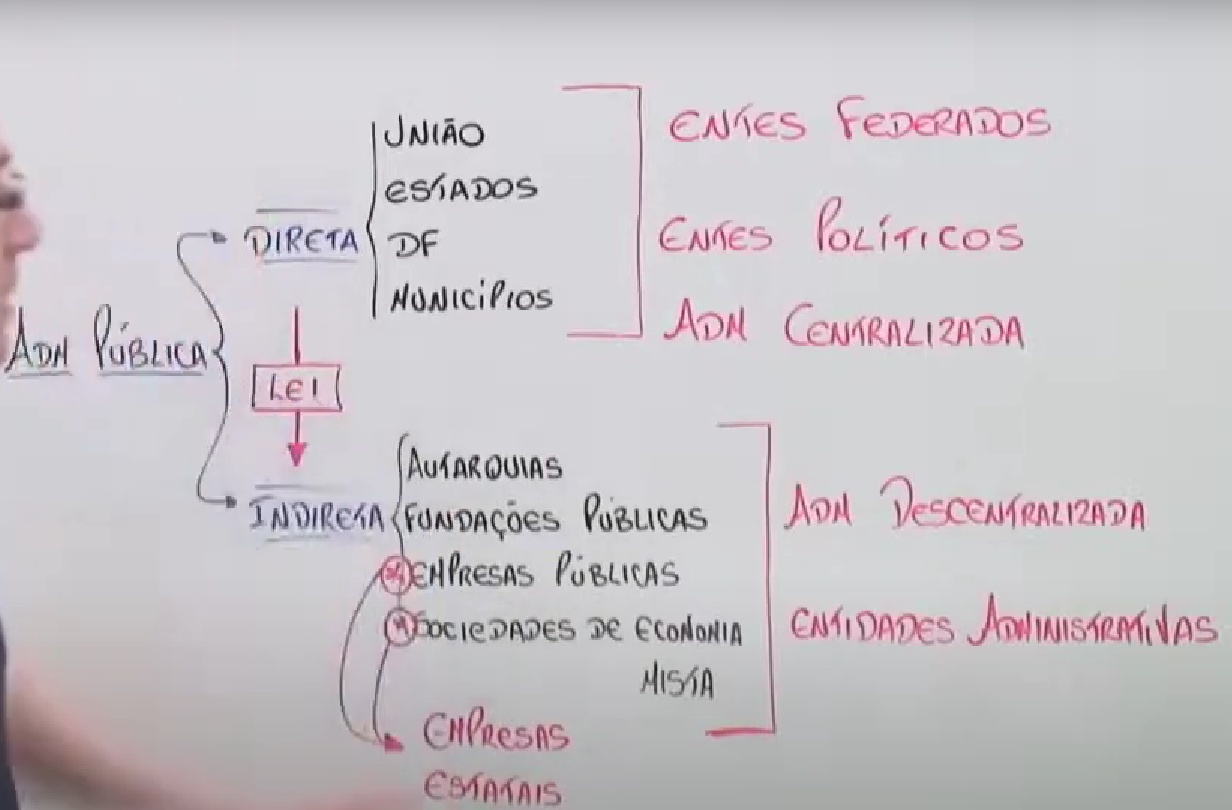 UNIÃO
ESTADOS
DF
MUNICÍPIOS
ENTES FEDERADOS
ENTES POLÍTICOS
ADM CENTRALIZADA
DIRETA
ADM PÚBLICA
LEI
INDIRETA
AUTARQUIAS
FUNDAÇÕES PÚBLICAS
EMPRESAS PÚBLICAS
SOCIEDADES DE ECONOMIA
MISTA
ADM DESCENTRALIZADA
ENTIDADES ADMINISTRATIVAS
EMPRESAS
ESTATAIS